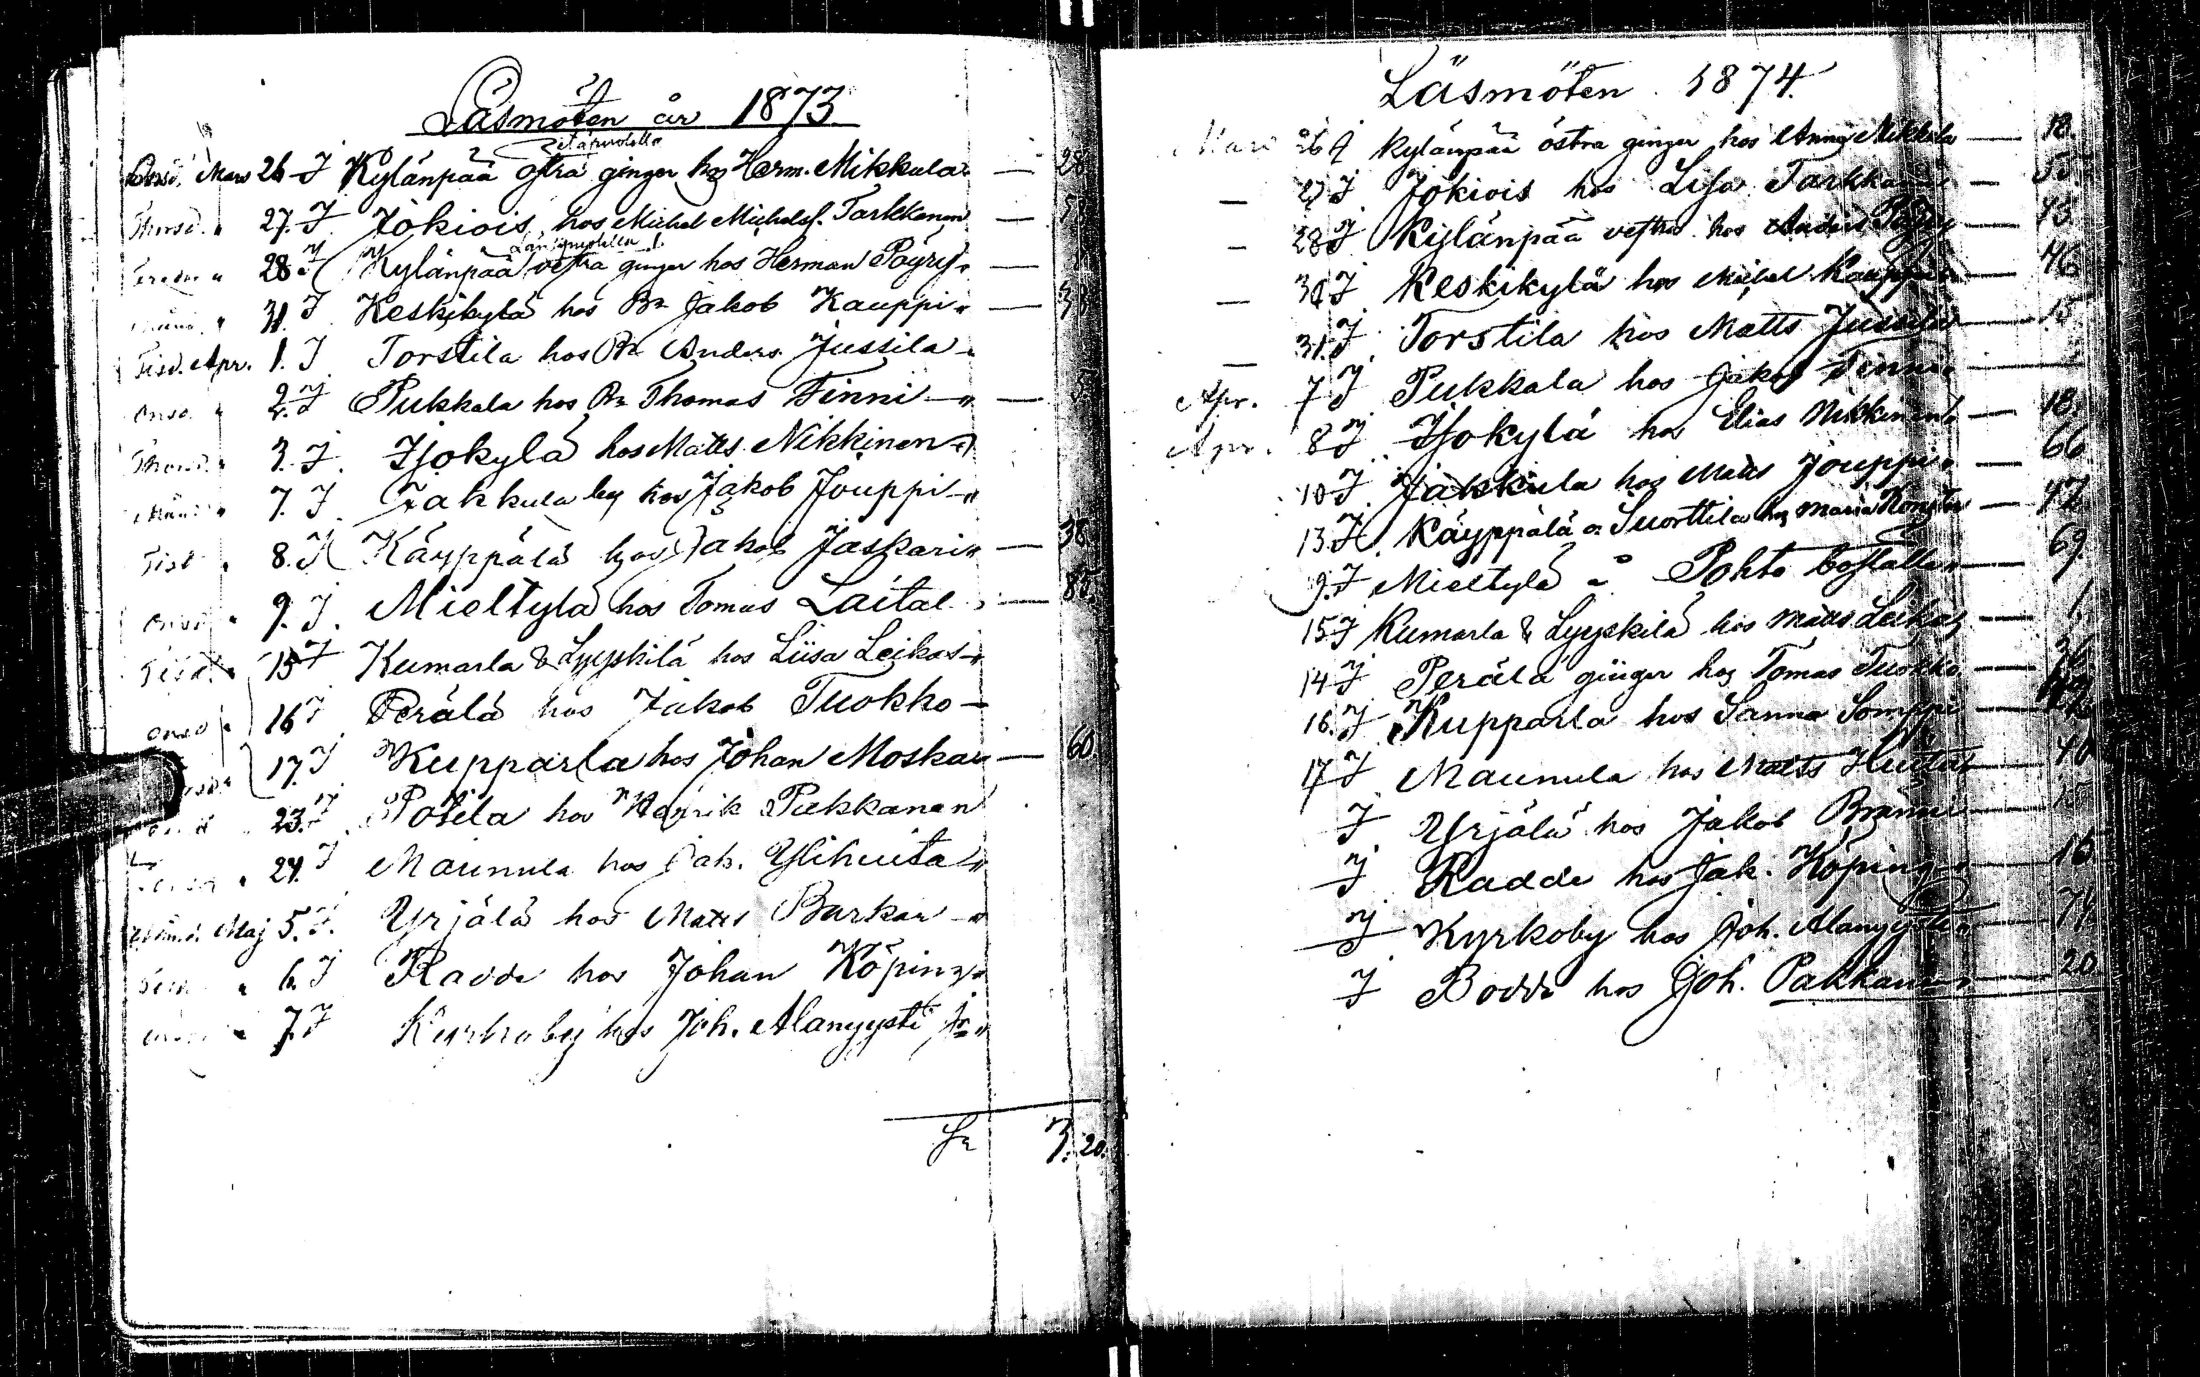 Läsmöten år 1873
Onsd. Mars 26 J Kylänpää östra ginger hos Herm. Mikkula — 28
Thorsd. " 27. J Jokiois hos Michel Michelsf. Tarkkanen —
Fredn " 28. J Kylänpää vestra ginger hos Herman Pöyry " —
Månd. " 31. J Keskikylä hos Bn Jakob Kauppi " — 3
Tisd. Apr. 1. J Torstila hos Bn Anders Jussila "
Onsd. " 2. J Pukkala hos Bn Thomas Finni " —
Thorsd. " 3. J. Ijokylä hos Matts Nikkinen "
Månd " 7. J Jakkula by hos Jakob Jouppi "
Tisd " 8. J Käyppälä hos Jakob Jaskari " — 38.
Onsd " 9. J. Mieltylä hos Tomas Laital — 85.
Tisd. " 15 J Kumarla & Lyyskilä hos Liisa Leikas "
Onsd " 16 J Perälä hos Jakob Tuokko —
17. J Kupparla hos Johan Moskar " — 60.
23. J Potila hos Henrik Pukkanen
" 24. J Maunula hos Jak. Ylihuita "
Månd. Maj 5. J. Yrjälä hos Matts Barkar "
" 6. J Radde hos Johan Köping "
" 7. J Kyrkoby hos Joh. Alanyysti "
Sr 7. 20.
Läsmöten 1874.
Mars 26 J Kylänpää östra ginger hos Anna Mikkula — 18.
— 27 J Jokiois hos Lisa Tarkkanen — 55.
— 28 J Kylänpää vestra hos Anders Pöyry — 45.
— 30 J Keskikylä hos Michel Kauppila — 46
— 31. J Torstila hos Matts Jussila — 15
Apr. 7 J Pukkala hos Jakob Finni " —
Apr. 8 J Ijokylä hos Elias Nikkinen — 18.
10 J Jakkula hos Matts Jouppi " — 66.
13. J. Käyppälä o. Suorttila hos Maria — 47.
9. J Mieltylä å Pohto boställe " — 69.
15 J Kumarla & Lyyskilä hos Matts Leikas — 1.
14 J Perälä ginger hos Tomas Tuokko —
16. J Kupparla hos Sanna Somppi —
17 J Maunula hos Matts Huita — 40
J Yrjälä hos Jakob Bränni — 15
J Radde hos Jak. Köping " — 16
J Kyrkoby hos Joh. Alanyysti " — 74.
J Bodde hos Joh. Pakkanen " — 20